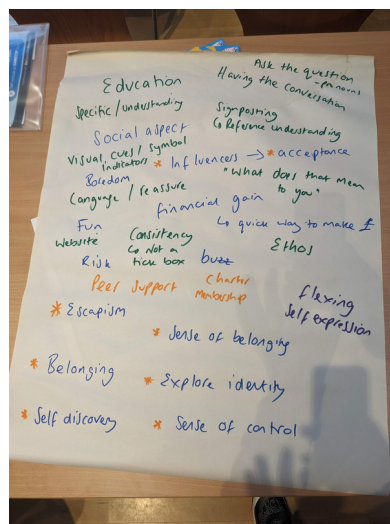 Ask the question
- pronouns
Education
Having the conversation
Specific / understanding
Signposting
↳ Reference understanding
Social aspect
Visual cues / symbol
indicators
* Influencers → * acceptance
Boredom
"What does that mean
to you"
Language / reassure
financial gain
↳ quick way to make £
Fun
Website
Consistency
↳ Not a
tick box
Ethos
Risk
buzz
Peer Support
Charter
Membership
flexing
self expression
* Escapism
* Sense of belonging
* Belonging
* Explore identity
* Self discovery
* Sense of control